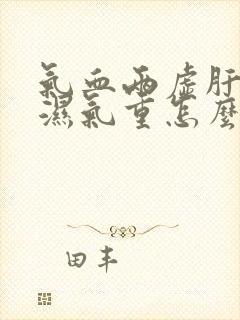 氣血兩虛肝
濕氣重怎麼
田丰